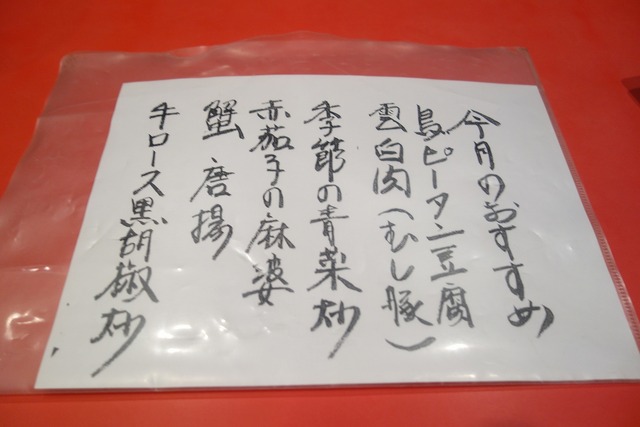 今月のおすすめ
鳥ピータン豆腐
雲白肉(むし豚)
季節の青菜炒
赤茄子の麻婆
蟹 唐揚
牛ロース黒胡椒炒